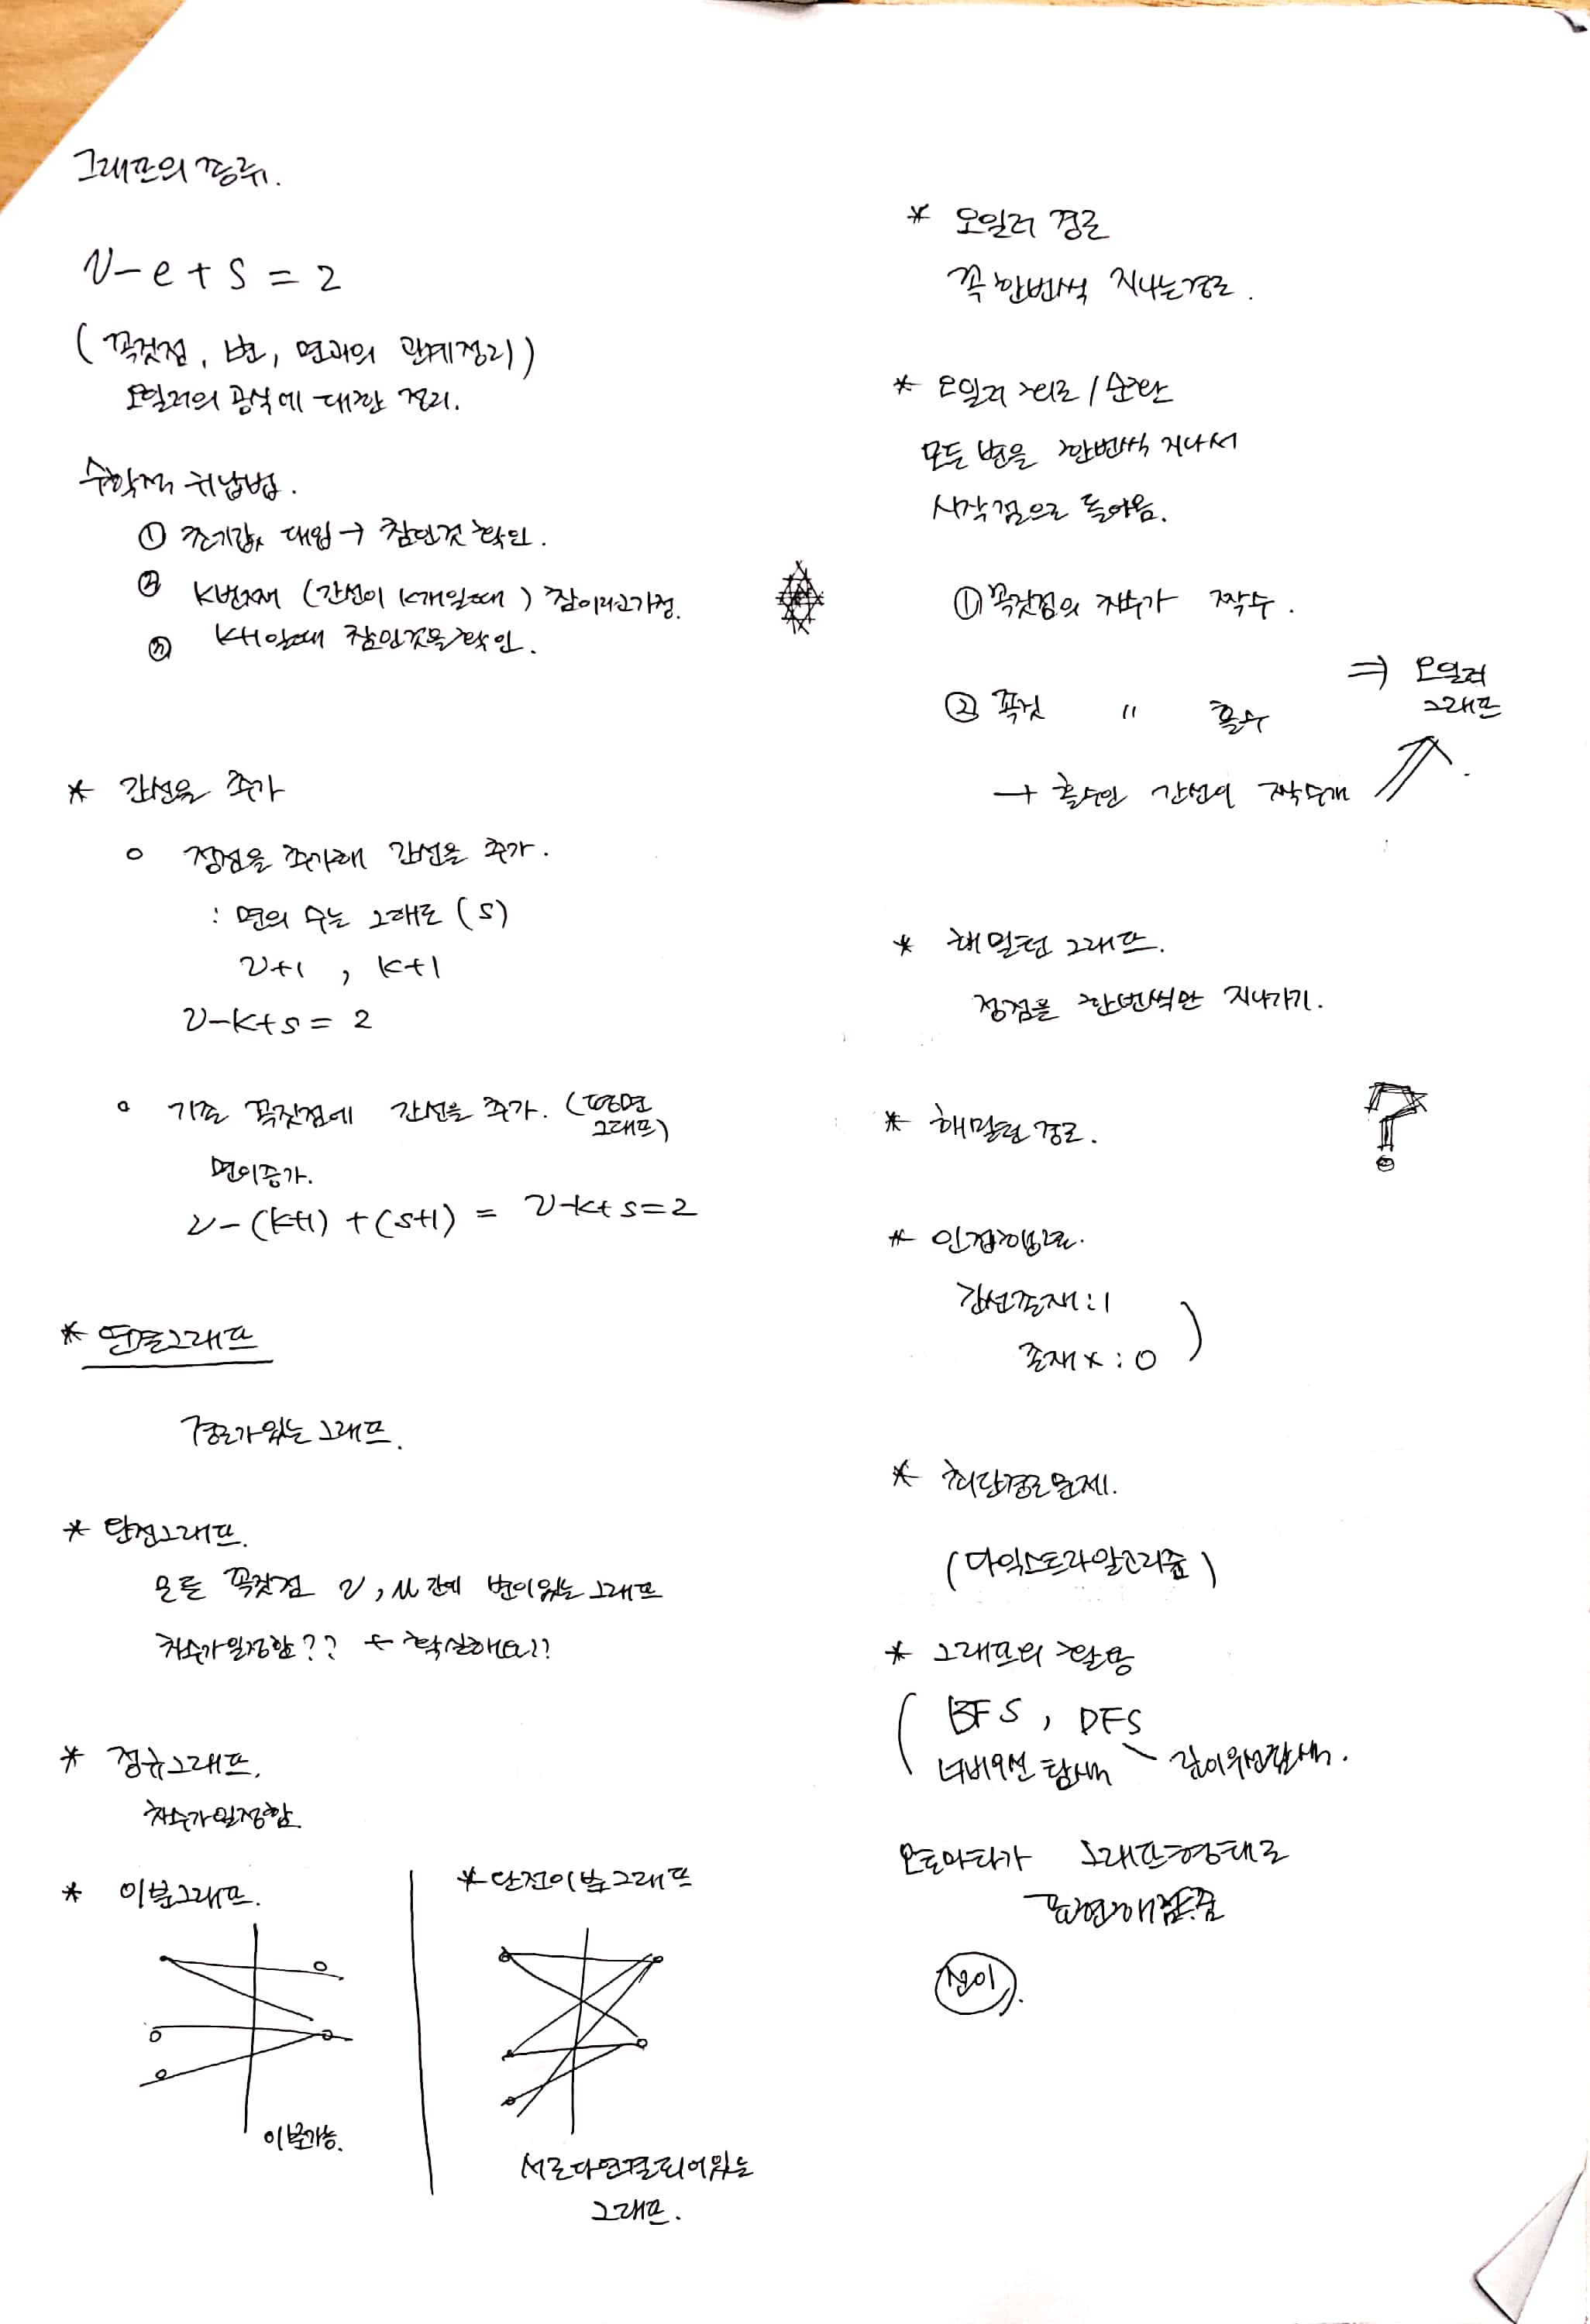 그래프의 종류.
v - e + s = 2
(꼭짓점, 변, 면과의 관계정리)
오일러의 공식에 대한 정리.
수학적 귀납법.
① 초기값 대입 → 참인것 확인.
② k번째 (간선이 k개일때) 참이라고가정.
③ k+1일때 참인것을확인.
* 간선을 추가
○ 정점을 추가해 간선을 추가.
: 면의 수는 그대로 (s)
v+1 , k+1
v-k+s = 2
○ 기존 꼭짓점에 간선을 추가. (평면
그래프)
면이증가.
v - (k+1) + (s+1) = v-k+s=2
* 연결그래프
경로가있는 그래프.
* 완전그래프.
모든 꼭짓점 v, u 간에 변이있는 그래프
차수가일정함?? ← 확실해요!!
* 정규그래프.
차수가일정함.
* 이분그래프.
이분가능.
* 완전이분그래프
서로다연결되어있는
그래프.
* 오일러 경로
꼭 한번씩 지나는경로.
* 오일러 회로 / 순환
모든 변을 한번씩 지나서
시작점으로 돌아옴.
① 꼭짓점의 차수가 짝수.
② 꼭짓 " 홀수
⇒ 오일러
그래프
→ 홀수인 간선이 짝수개
* 해밀턴 그래프.
정점을 한번씩만 지나가기.
* 해밀턴 경로.
?
* 인접행렬.
간선존재 : 1
존재 x : 0
* 최단경로문제.
(다익스트라알고리즘)
* 그래프의 활용
BFS , DFS
너비우선 탐색 깊이우선탐색.
오토마타가 그래프형태로
표현해
전이.